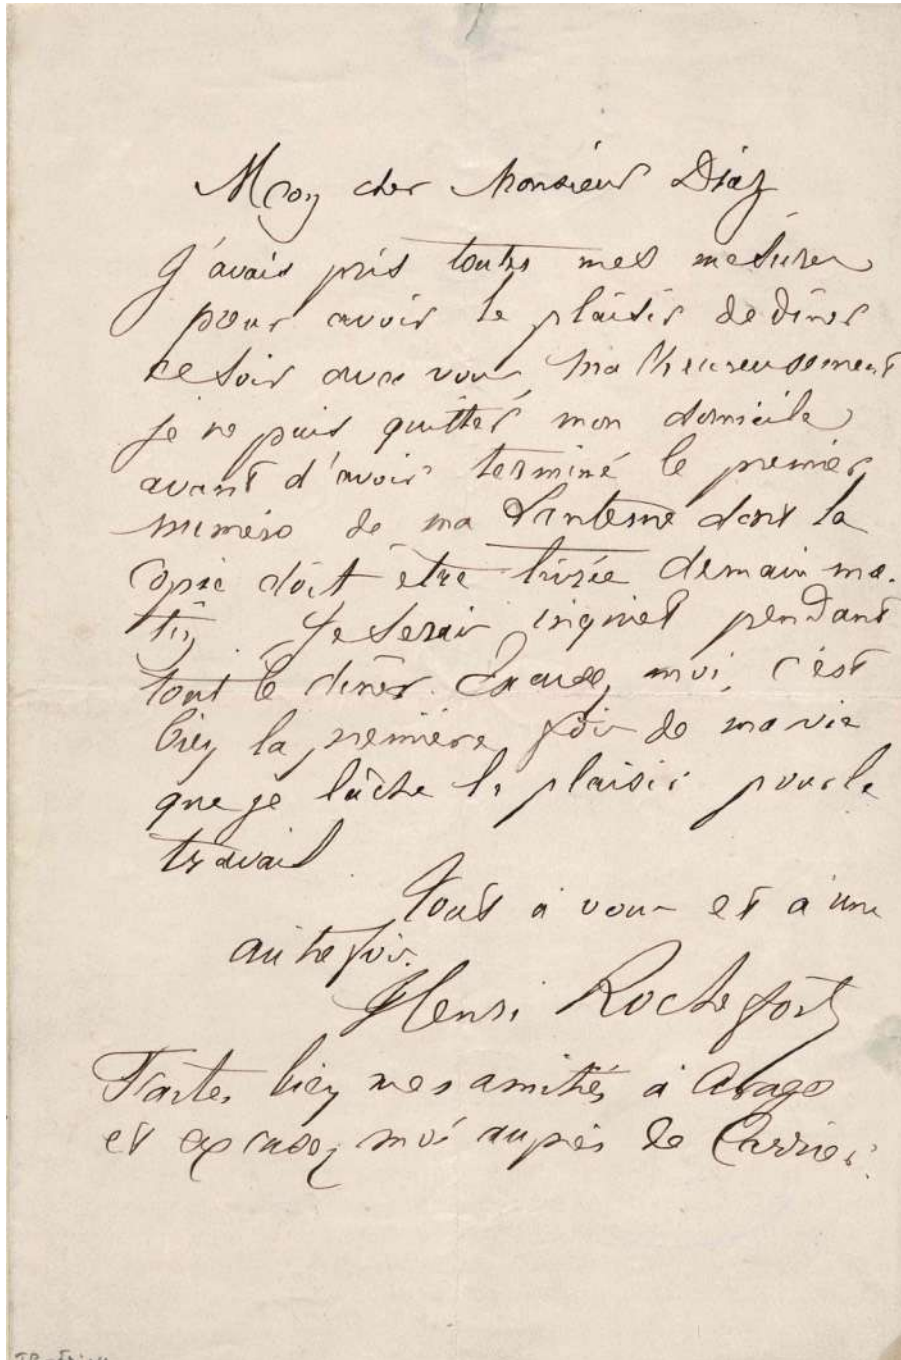 Mon cher Monsieur Diaz
J'avais pris toutes mes mesures
pour avoir le plaisir de dîner
ce soir avec vous, malheureusement
je ne puis quitter mon domicile
avant d'avoir terminé le premier
numéro de ma Lanterne dont la
copie doit être livrée demain ma-
tin. Je serais inquiet pendant
tout le dîner. Excusez moi, c'est
bien la première fois de ma vie
que je lâche le plaisir pour le
travail
Tout à vous et à une
autre fois.
Henri Rochefort
Faites bien mes amitiés à Arago
et excusez moi auprès de